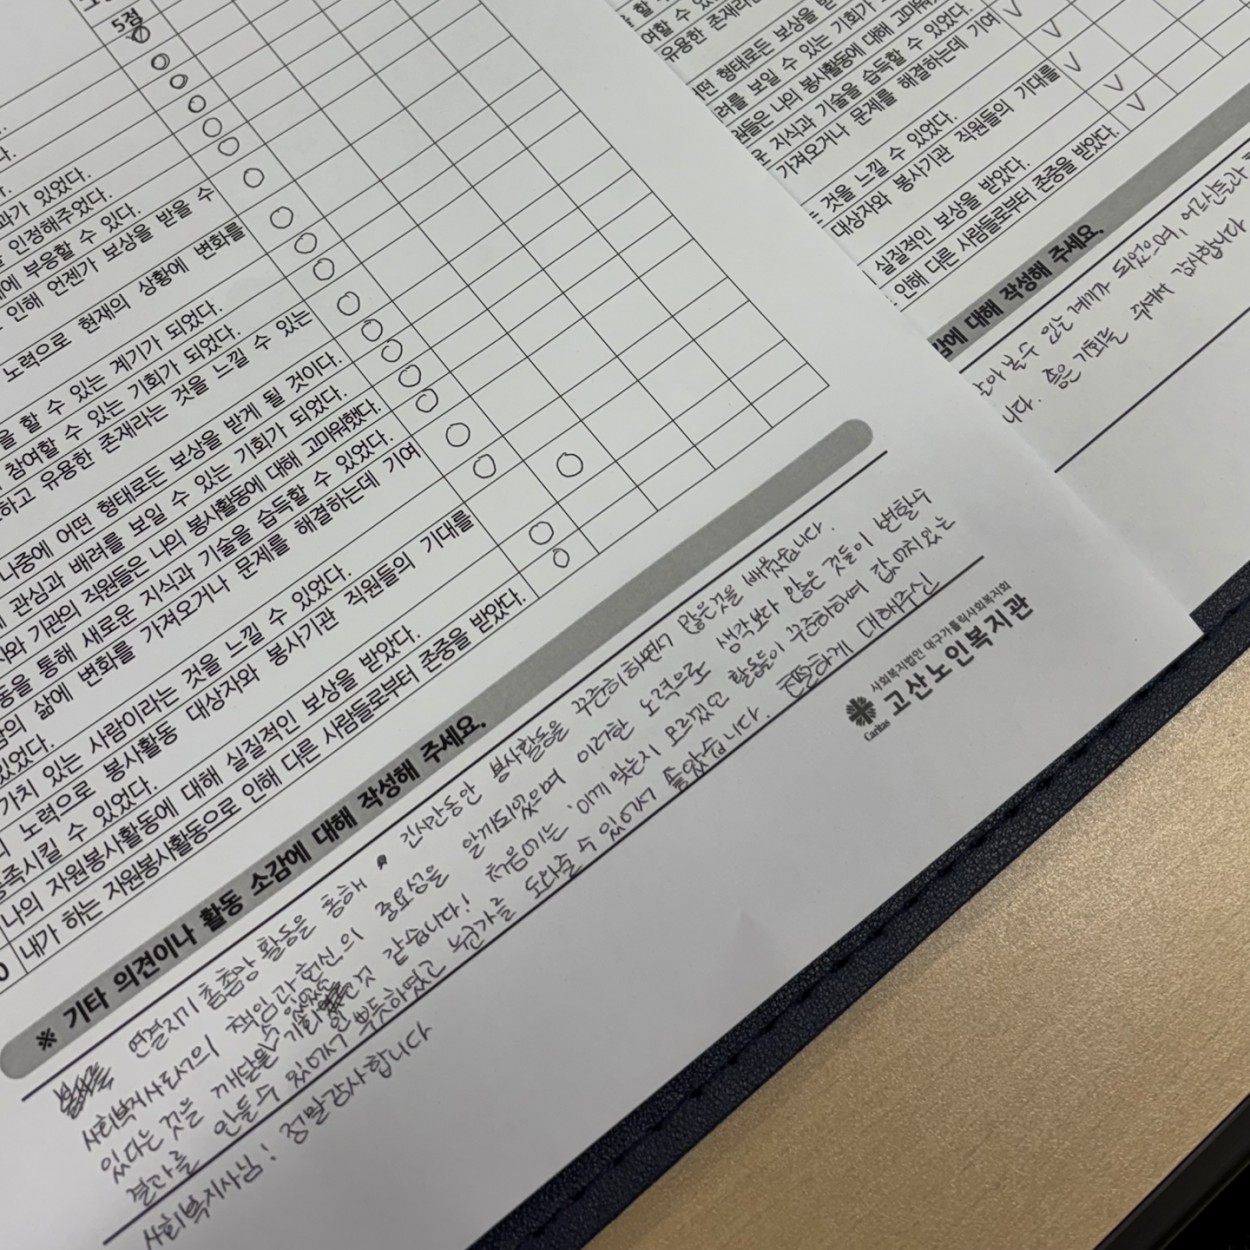 5점
과가 있었다.
인정해주었다.
에 부응할 수 있다.
인해 언젠가 보상을 받을 수
노력으로 현재의 상황에 변화를
을 할 수 있는 계기가 되었다.
참여할 수 있는 기회가 되었다.
하고 유용한 존재라는 것을 느낄 수 있는
나중에 어떤 형태로든 보상을 받게 될 것이다.
관심과 배려를 보일 수 있는 기회가 되었다.
와 기관의 직원들은 나의 봉사활동에 대해 고마워했다.
동을 통해 새로운 지식과 기술을 습득할 수 있었다.
의 삶에 변화를 가져오거나 문제를 해결하는데 기여
있었다.
가치 있는 사람이라는 것을 느낄 수 있었다.
노력으로 봉사활동 대상자와 봉사기관 직원들의 기대를
족시킬 수 있었다.
나의 자원봉사활동에 대해 실질적인 보상을 받았다.
내가 하는 자원봉사활동으로 인해 다른 사람들로부터 존중을 받았다.
※ 기타 의견이나 활동 소감에 대해 작성해 주세요.
연결지기 촘촘망 활동을 통해 긴시간동안 봉사활동을 꾸준히 하면서 많은것을 배웠습니다.
사회복지사로서의 책임과 헌신의 중요성을 알게되었으며 이러한 노력으로 생각보다 많은 것들이 변할수
있다는 것을 깨달을 수 있었던 기회 것 같습니다! 처음에는 '이게 맞는지 모르겠던 활동들이 꾸준하며 값어치있는
결과를 만들수 있어서 뿌듯하였고 누군가를 도와줄 수 있어서 좋았습니다. 친절하게 대해주신
사회복지사님! 정말감사합니다
Caritas
사회복지법인 대구가톨릭사회복지회
고산노인복지관
할 수 있
여할 수 있
유용한 존재라
떤 형태로든 보상을 받
려를 보일 수 있는 기회가
원들은 나의 봉사활동에 대해 고마워
지식과 기술을 습득할 수 있었다.
가져오거나 문제를 해결하는데 기여
것을 느낄 수 있었다.
대상자와 봉사기관 직원들의 기대를
실질적인 보상을 받았다.
인해 다른 사람들로부터 존중을 받았다.
감에 대해 작성해 주세요.
수 있는 계기가 되었으며, 어르신들과
다. 좋은 기회를 주셔서 감사합니다